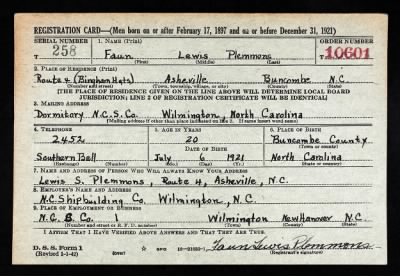 REGISTRATION CARD—(Men born on or after February 17, 1897 and on or before December 31, 1921)
SERIAL NUMBER 1. NAME (Print) ORDER NUMBER
T 258 Faun Lewis Plemmons T 10601
(First) (Middle) (Last)
2. PLACE OF RESIDENCE (Print)
Route 4 (Bingham Hgts) Asheville Buncombe N.C.
(Number and street) (Town, township, village, or city) (County) (State)
[THE PLACE OF RESIDENCE GIVEN ON THE LINE ABOVE WILL DETERMINE LOCAL BOARD
JURISDICTION; LINE 2 OF REGISTRATION CERTIFICATE WILL BE IDENTICAL]
3. MAILING ADDRESS
Dormitory N.C.S.Co. Wilmington, North Carolina
[Mailing address if other than place indicated on line 2. If same insert word same]
4. TELEPHONE 5. AGE IN YEARS 6. PLACE OF BIRTH
2452 20 Buncombe County
DATE OF BIRTH (Town or county)
Southern Bell July 6 1921 North Carolina
(Exchange) (Number) (Mo.) (Day) (Yr.) (State or country)
7. NAME AND ADDRESS OF PERSON WHO WILL ALWAYS KNOW YOUR ADDRESS
Lewis S. Plemmons, Route 4, Asheville, N.C.
8. EMPLOYER'S NAME AND ADDRESS
N.C. Shipbuilding Co. Wilmington, N.C.
9. PLACE OF EMPLOYMENT OR BUSINESS
N.C.S. Co. 1 Wilmington New Hanover N.C.
(Number and street or R. F. D. number) (Town) (County) (State)
I AFFIRM THAT I HAVE VERIFIED ABOVE ANSWERS AND THAT THEY ARE TRUE.
D. S. S. Form 1
(Revised 1-1-42) GPO 16—21630-1 Faun Lewis Plemmons
(Registrant's signature)